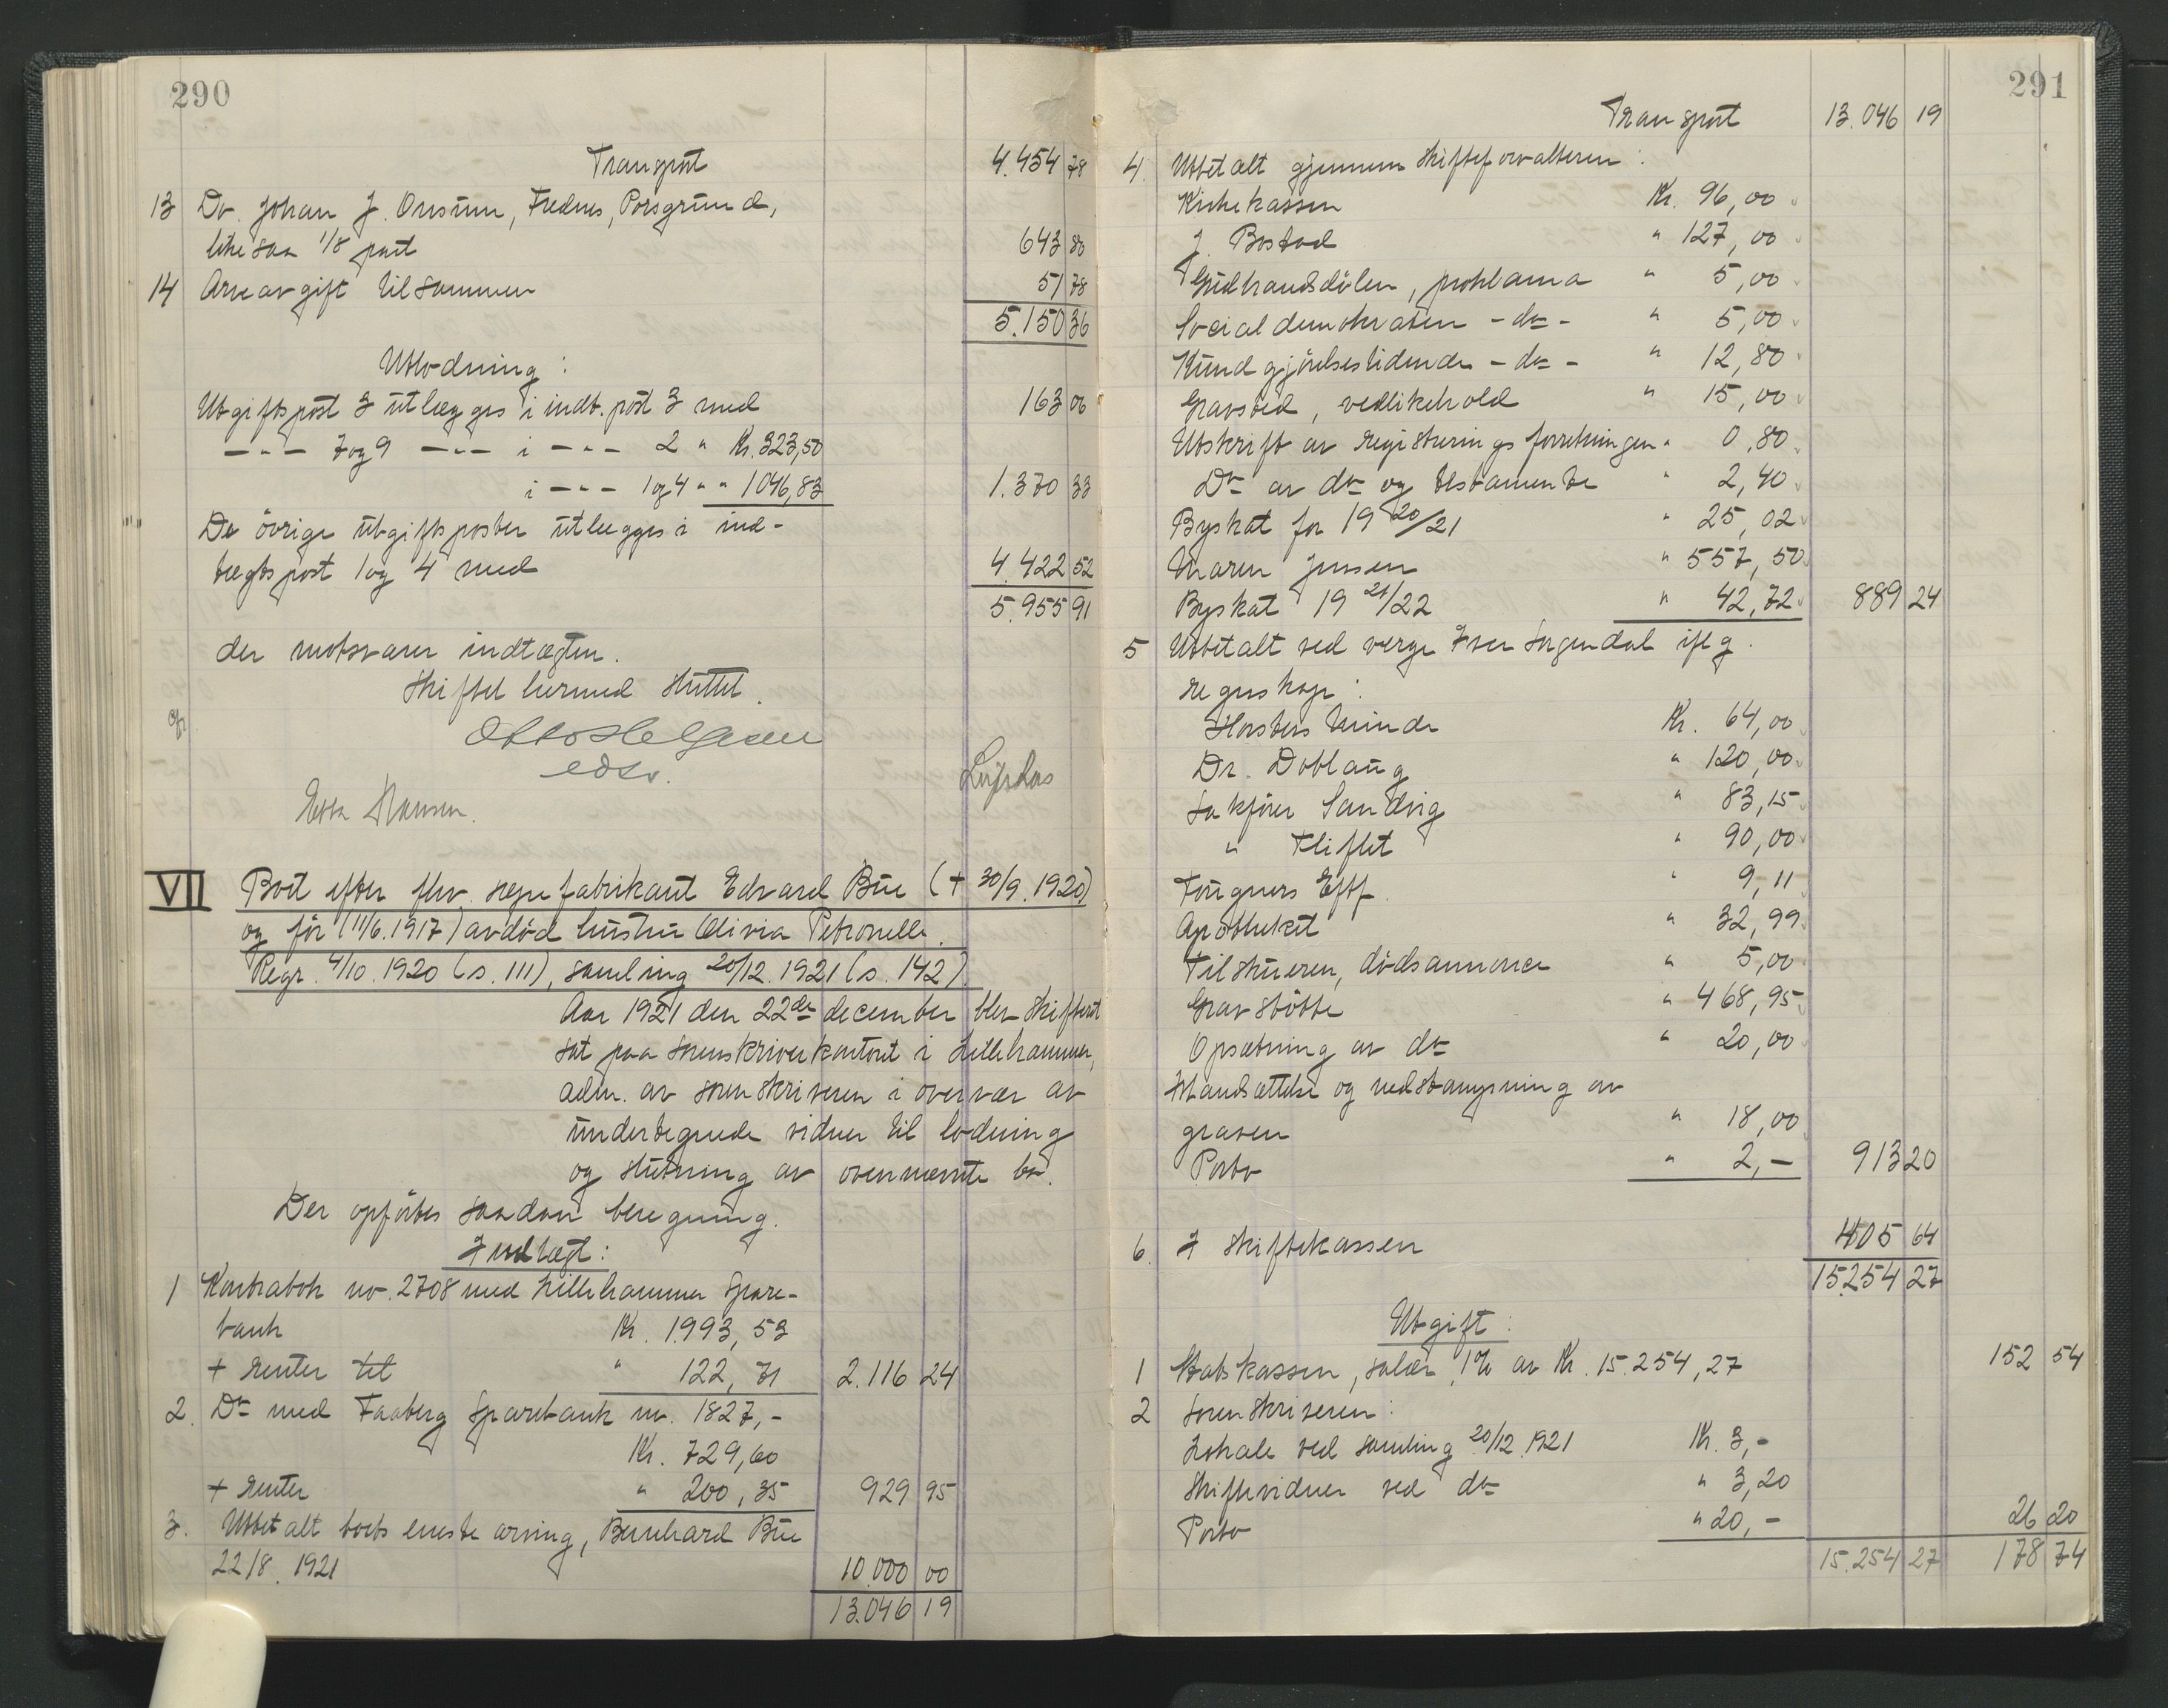 290
Transport 4.454 78
13 Do. Johan J. Onsum, Frednes, Porsgrund,
likesaa 1/8 part 643 80
14 Arveavgift tilsammen 51 78
5.150 36
Utlodning:
Utgiftspost 3 utlægges i indt. post 3 med 163 06
—"— 7 og 9 —"— i —"— 2 " Kr. 323,50
i —"— 1 og 4 " " 1046,83 1.370 33
De övrige utgiftsposter utlægges i ind-
tægtspost 1 og 4 med 4.422 52
5.955 91
der motsvarer indtægten.
Skiftet hermed sluttet.
edsv.
Hansen.
VII Boet efter fhv. sæpefabrikant Edvard Bue († 30/9. 1920)
og för (11/6. 1917) avdöd hustru Olivia Petronelle.
Regr. 4/10. 1920 (s. 111), samling 20/12. 1921 (s. 142)
Aar 1921 den 22de december blev skifteret
sat paa sorenskriverkontoret i Lillehammer,
adm. av sorenskriveren i overvær av
undertegnede vidner til lodning
og slutning av ovennævnte bo.
Der opförtes saadan beregning.
Indtægt:
1 Kontrabok nr. 2708 med Lillehammer Spare-
bank Kr. 1993,53
+ renter til " 122,71 2.116 24
2. Do med Faaberg Sparebank nr. 1827,-
Kr. 729,60
+ renter " 200,35 929 95
3. Utbetalt boets eneste arving, Bernhard Bue
22/8. 1921 10.000 00
13.046 19
291
Transport 13.046 19
4. Utbetalt gjennem skifteforvalteren:
Kirkekassen Kr. 96,00
J. Bostad " 127,00
Gudbrandsdölen, proklama " 5,00
Socialdemokraten - do - " 5,00
Kundgjörelsestidende - do - " 12,80
Gravsted, vedlikehold " 15,00
Utskrift av registreringsforretningen " 0,80
Do av do og testamente " 2,40
Byskat for 19 20/21 " 25,02
Maren Jensen " 557,50
Byskat 19 21/22 " 42,72 889 24
5 Utbetalt ved verge Iver Sagendal iflg.
regnskap:
Horsters Minde Kr. 64,00
Dr. Doblaug " 120,00
Sakförer Sandvig " 83,15
" Fliflet " 90,00
Fougners Eftf. " 9,11
Apotheket " 32,99
Tilskueren, dödsannonce " 5,00
Gravstötte " 468,95
Opsætning av do " 20,00
Istandsættelse og nedstampning av
graven " 18,00
Porto " 2,- 913 20
6. I skiftekassen 405 64
15.254 27
Utgift:
1 Statskassen, salær 1% av Kr. 15.254,27 152 54
2 Sorenskriveren:
Lokale ved samling 20/12. 1921 Kr. 3,-
Skiftevidner ved do " 3,20
Porto " 20,- 26 20
15.254 27 178 74